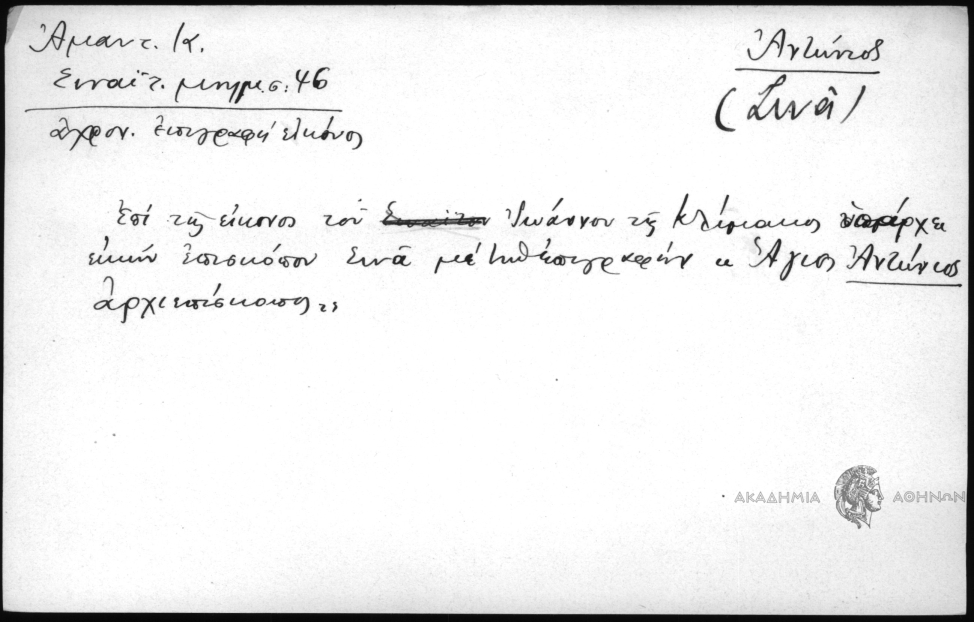 Ἀμαντ. Κ.
Σιναϊτ. μνημ. σ. 46
ἄχρον. ἐπιγραφή εἰκόνος
Ἀντώνιος
(Σινᾶ)
Ἐπί τῆς εἰκόνος τοῦ Ἰωάννου τῆς Κλίμακος ὑπάρχει
εἰκών ἐπισκόπου Σινᾶ μέ τήν ἐπιγραφήν « Ἅγιος Ἀντώνιος
ἀρχιεπίσκοπος».
ΑΚΑΔΗΜΙΑ ΑΘΗΝΩΝ